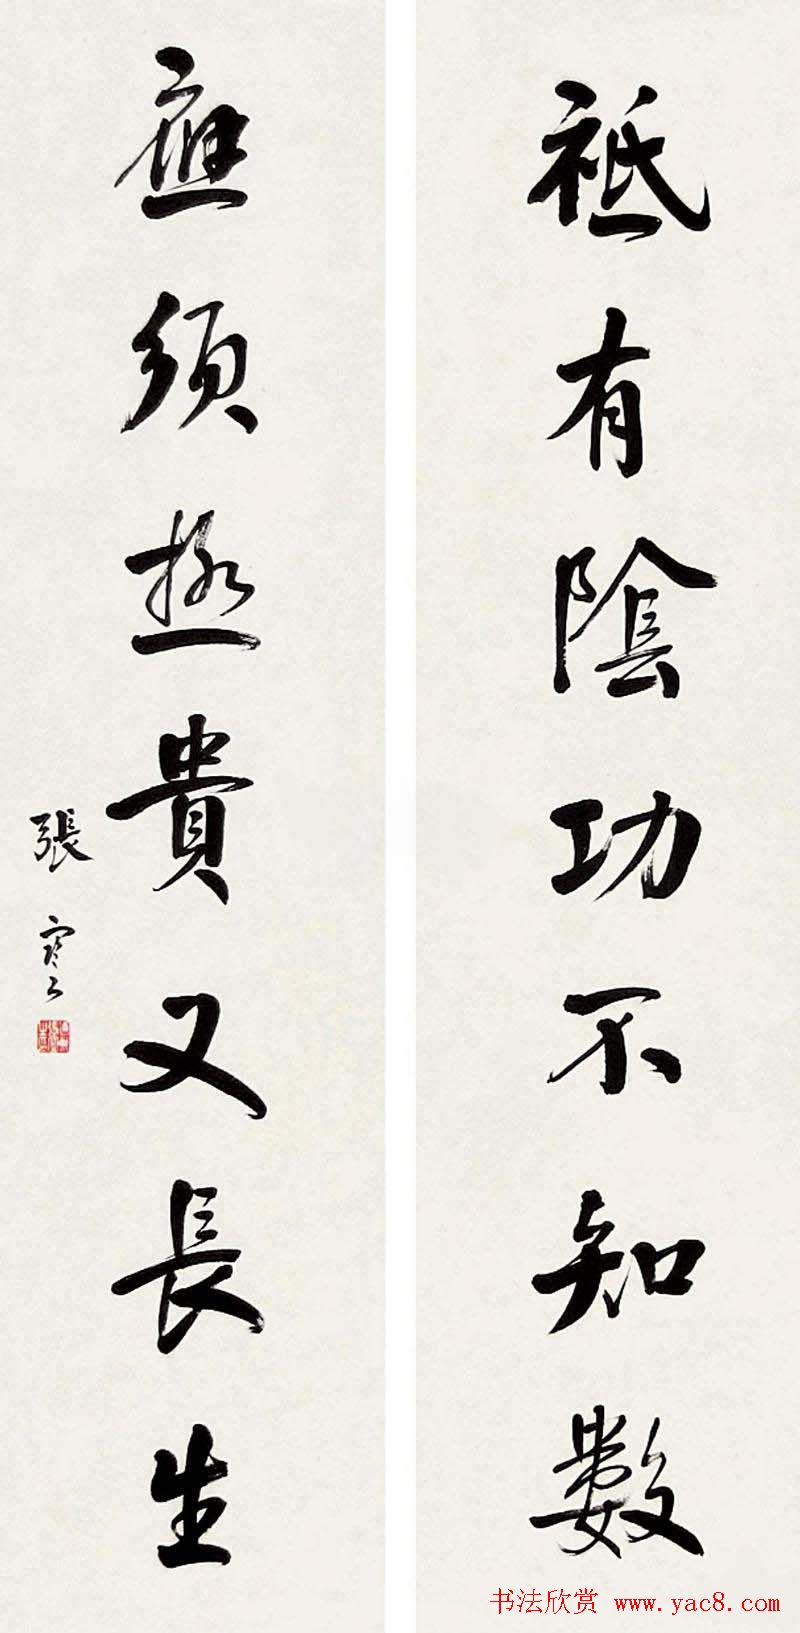 祗有陰功不知數
應須極貴又長生
張寒
书法欣赏 www.yac8.com